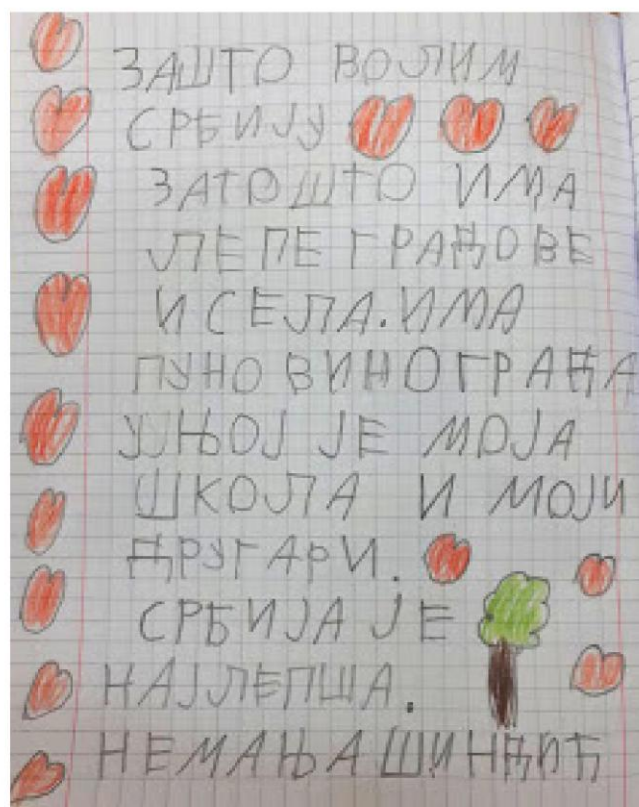 ЗАШТО ВОЛИМ
СРБИЈУ
ЗАТОШТО ИМА
ЛЕПЕ ГРАДОВЕ
И СЕЛА. ИМА
ПУНО ВИНОГРАДА
У ЊОЈ ЈЕ МОЈА
ШКОЛА И МОЈИ
ДРУГАРИ.
СРБИЈА ЈЕ
НАЈЛЕПША.
НЕМАЊА ШИНЂИЋ